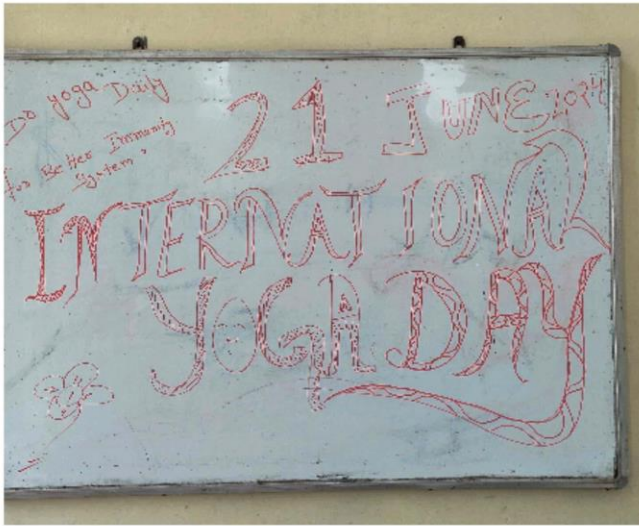 Do yoga Daily
for Better Immunity
System.
21 JUNE 2024
INTERNATIONAL
YOGA DAY